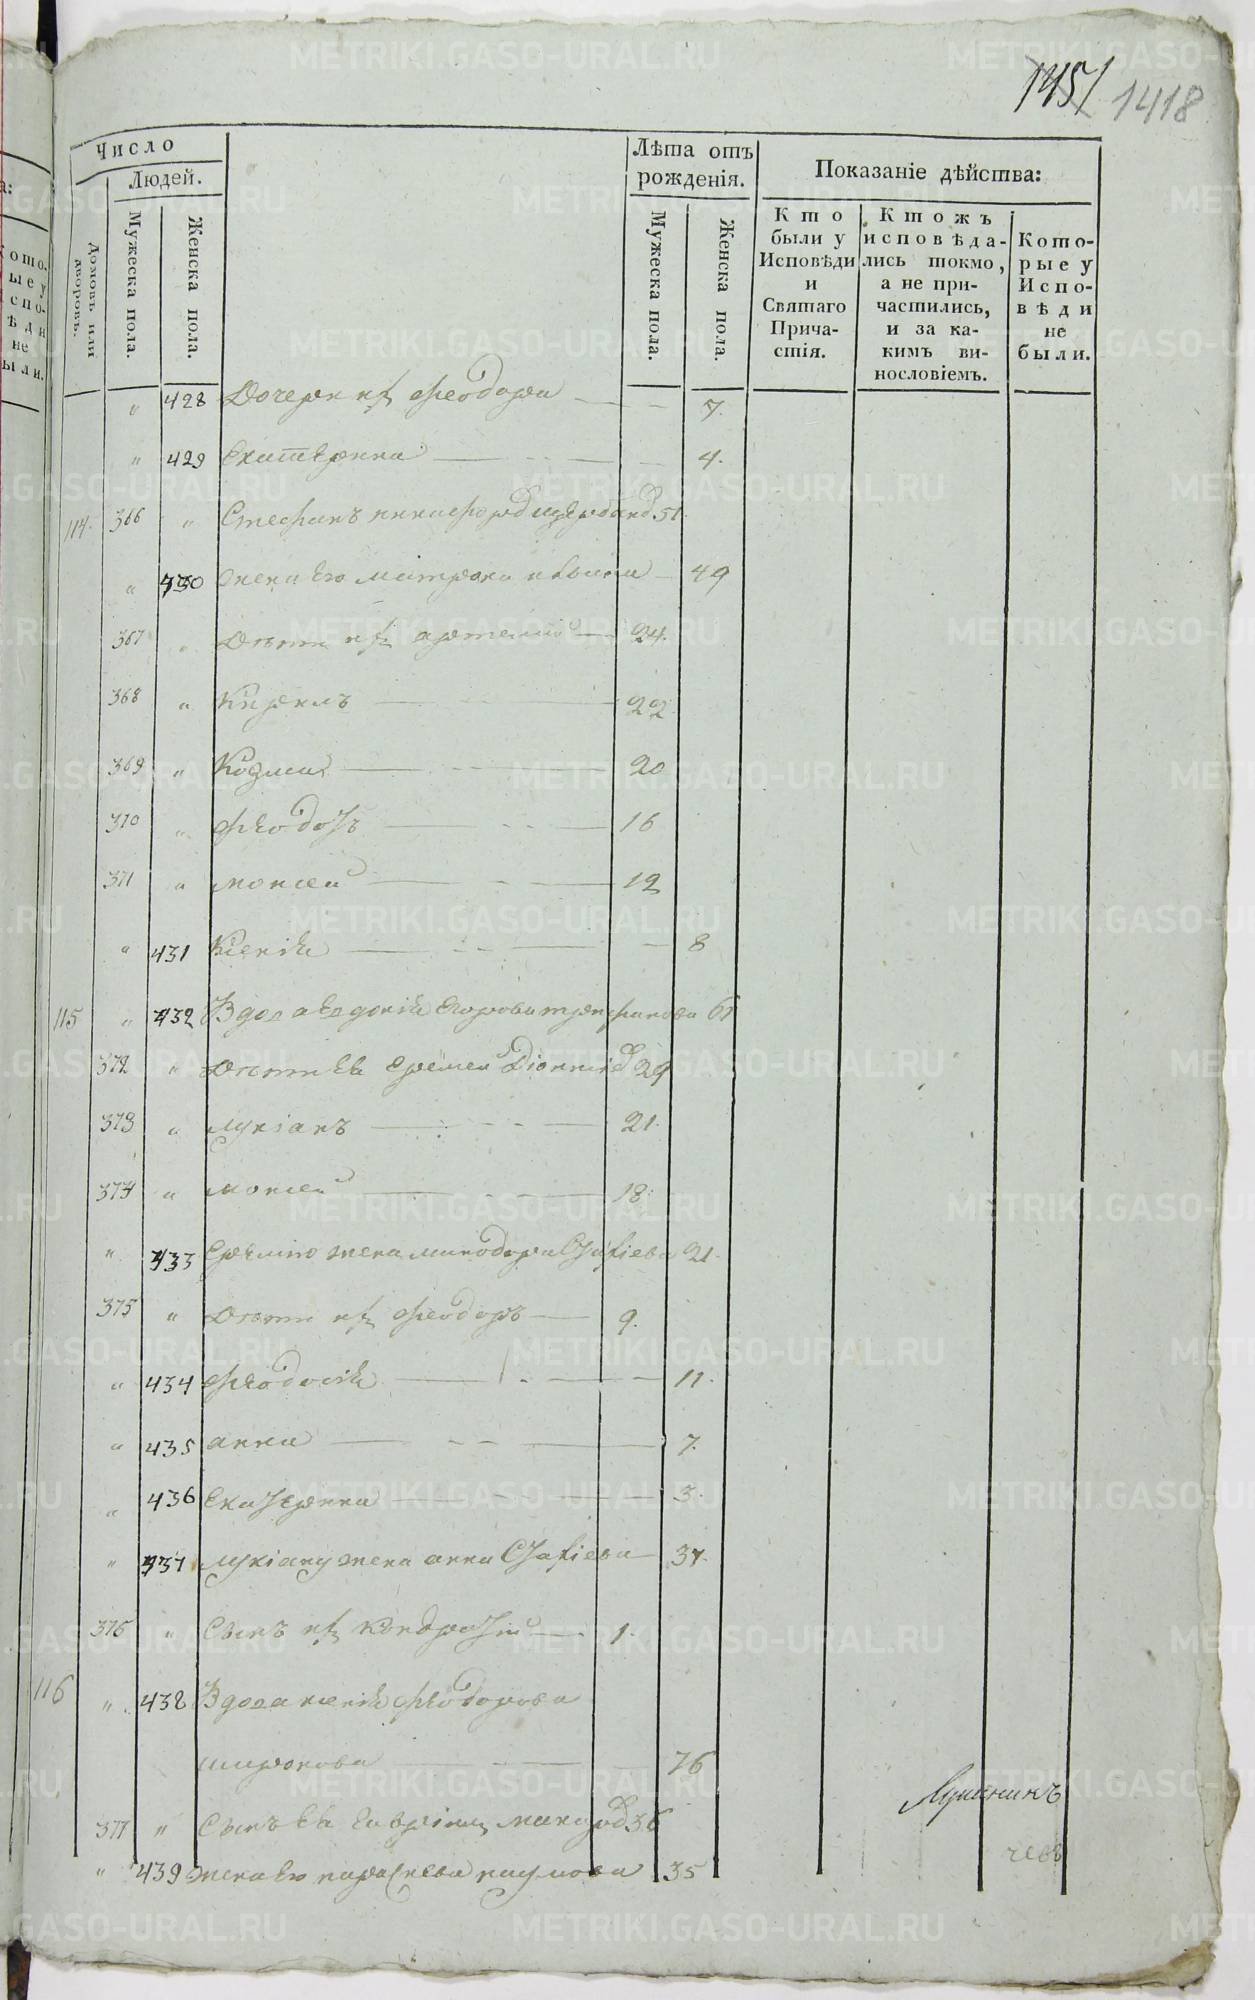 1451 1418
Число
Людей.
Домовъ или дворовъ.
Мужеска пола.
Женска пола.
Лѣта отъ
рожденія.
Мужеска пола.
Женска пола.
Показаніе дѣйства:
Кто
были у
Исповѣди
и
Святаго
Прича-
стія.
Ктожъ
исповѣда-
лись токмо,
а не при-
частились,
и за ка-
кимъ ви-
нословіемъ.
Кото-
рые у
Испо-
вѣди
не
были.
" 428 Дочери их Феодора 7.
" 429 Екатерина 4.
114. 366 " Стефанъ 51.
" 430 жена его Матрона 49
367 " Дѣти их Артемий 24.
368 " Кирилъ 22.
369 " Козма 20
370 " Феодотъ 16
371 " Моисей 12
" 431 Ксенія 8
115 " 432 Вдова Евдокія Егорова 61
372 " Дѣти ея Еремей Дионисіев 29
373 " Лукіанъ 21.
374 " Моисей 18.
" 433 жена 21.
375 " Дѣти их Феодоръ 9.
" 434 Феодосія 11.
" 435 Анна 7.
" 436 Екатерина 3.
" 437 Лукіану жена Анна 37.
376 " Сынъ их Кондратій 1.
116 " 438 Вдова Ксенія Феодорова
Широкова 76
377 " Сынъ ея 36
" 439 жена его Параскева Наумова 35
METRIKI.GASO-URAL.RU